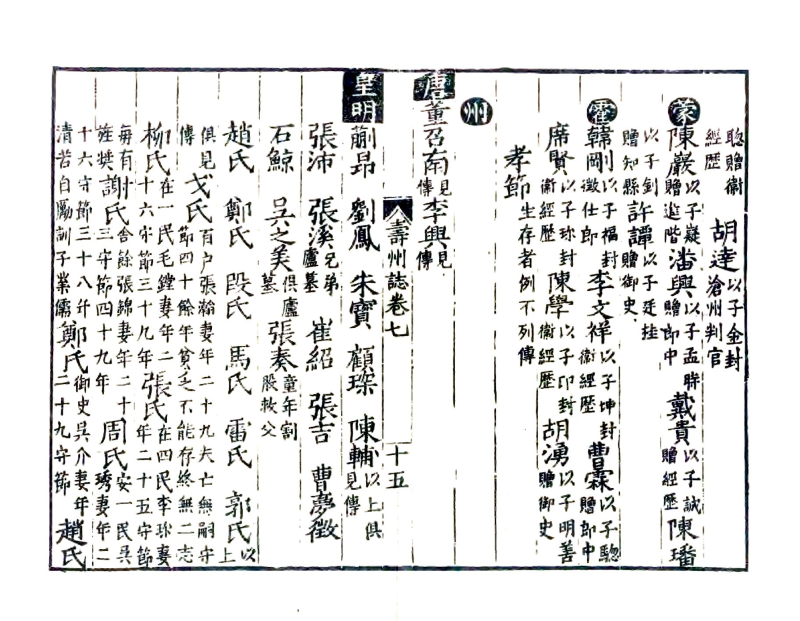 聰贈衞經歷 胡達以子金封滄州判官
蒙陳巖以子嶷贈進階潘興以子孟時贈郎中戴貴以子誠贈經歷陳璠
以子釗贈知縣許譚以子廷桂贈御史
霍韓剛以子楫封徵仕郎李文祥以子坤封衞經歷曹霖以子驄贈郎中
席賢以子珎封衞經歷陳學以子印封衞經歷胡湧以子明善贈御史
孝節生存者例不列傳
州
唐董召南見傳李興見傳
壽州誌卷七 十五
皇明蒯昂 劉鳳 朱寶 顧琛 陳輔以上俱見傳
張沛 張溪兄弟廬墓 崔紹 張吉 曹夢徵
石鯨 吳之美俱廬墓 張奏童年割股救父
趙氏 鄭氏 段氏 馬氏 雷氏 郭氏以上
俱見傳 戈氏百户張瀚妻年二十九夫亡無嗣守節四十餘年貧乏不能存終無二志
柳氏在一民毛鏜妻年二十六守節三十九年張氏在四民李珎妻年二十五守節
每有旌獎謝氏舍餘張錦妻年二十三守節四十九年周氏安一民吳琇妻年二
十六守節三十八年清苦自勵訓子業儒鄭氏御史吳介妻年二十九守節趙氏